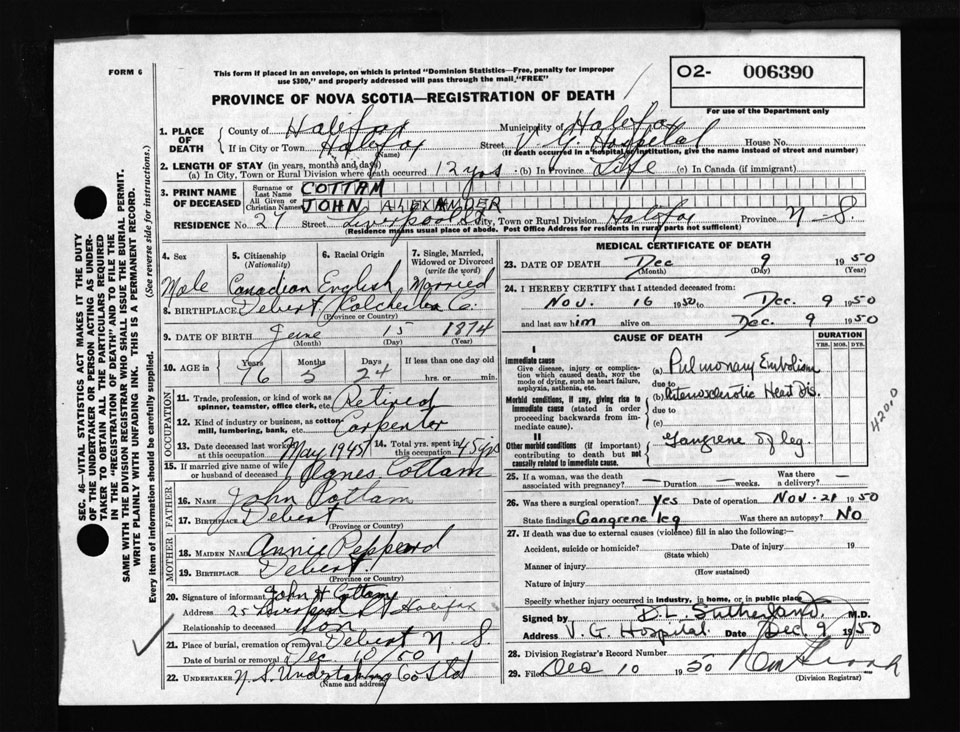 FORM 6
This form if placed in an envelope, on which is printed "Dominion Statistics—Free, penalty for improper
use $300," and properly addressed will pass through the mail, "FREE"
O2- 006390
For use of the Department only
PROVINCE OF NOVA SCOTIA—REGISTRATION OF DEATH
SEC. 46—VITAL STATISTICS ACT MAKES IT THE DUTY
OF THE UNDERTAKER OR PERSON ACTING AS UNDER-
TAKER TO OBTAIN ALL THE PARTICULARS REQUIRED
IN THE "REGISTRATION OF DEATH" AND TO FILE THE
SAME WITH THE DIVISION REGISTRAR WHO SHALL ISSUE THE BURIAL PERMIT.
WRITE PLAINLY WITH UNFADING INK. THIS IS A PERMANENT RECORD.
Every item of information should be carefully supplied. (See reverse side for instructions.)
1. PLACE OF DEATH
County of Halifax Municipality of Halifax
If in City or Town Halifax (Name) Street V. G. Hospital House No.
(If death occurred in a hospital or institution, give the name instead of street and number)
2. LENGTH OF STAY (in years, months and days)
(a) In City, Town or Rural Division where death occurred 12 yrs (b) In Province Life (c) In Canada (if immigrant)
3. PRINT NAME OF DECEASED
Surname or Last Name COTTAM
All Given or Christian Names JOHN ALEXANDER
RESIDENCE No. 27 Street Liverpool St City, Town or Rural Division Halifax Province N-S
(Residence means usual place of abode. Post Office Address for residents in rural parts not sufficient)
4. Sex 5. Citizenship (Nationality) 6. Racial Origin 7. Single, Married, Widowed or Divorced (write the word)
Male Canadian English Married
8. BIRTHPLACE Debert, Colchester Co.
(Province or Country)
9. DATE OF BIRTH June 15 1874
(Month) (Day) (Year)
10. AGE in Years Months Days If less than one day old
76 5 24 hrs. or min.
OCCUPATION
11. Trade, profession, or kind of work as spinner, teamster, office clerk, etc. Retired
12. Kind of industry or business, as cotton mill, lumbering, bank, etc. Carpenter
13. Date deceased last worked at this occupation May 1945 14. Total yrs. spent in this occupation 45 yrs
15. If married give name of wife or husband of deceased Agnes Cottam
FATHER
16. NAME John Cottam
17. BIRTHPLACE Debert
(Province or Country)
MOTHER
18. MAIDEN NAME Annie Peppard
19. BIRTHPLACE Debert
(Province or Country)
20. Signature of informant John H Cottam
Address 25 Liverpool St Halifax
Relationship to deceased Son
21. Place of burial, cremation or removal Debert N. S
Date of burial or removal Dec 10 50
22. UNDERTAKER N. S. Undertaking Co Ltd
(Name and address)
MEDICAL CERTIFICATE OF DEATH
23. DATE OF DEATH Dec 9 1950
(Month) (Day) (Year)
24. I HEREBY CERTIFY that I attended deceased from:
Nov. 16 1950 to Dec. 9 1950
and last saw him alive on Dec. 9 1950
CAUSE OF DEATH DURATION
YRS. MOS. DYS.
I
Immediate cause
Give disease, injury or complication which caused death, not the mode of dying, such as heart failure, asphyxia, asthenia, etc.
(a) Pulmonary Embolism
due to
Morbid conditions, if any, giving rise to immediate cause (stated in order proceeding backwards from immediate).
(b) Arteriosclerotic Heart Dis.
due to
(c)
420.0
II
Other morbid conditions (if important) contributing to death but not causally related to immediate cause.
Gangrene of leg
25. If a woman, was the death associated with pregnancy? — Duration — weeks. Was there a delivery? —
26. Was there a surgical operation? Yes Date of operation Nov. 21 1950
State findings Gangrene leg Was there an autopsy? No
27. If death was due to external causes (violence) fill in also the following:
Accident, suicide or homicide? Date of injury 19
(State which)
Manner of injury
(How sustained)
Nature of injury
Specify whether injury occurred in industry, in home, or in public place
Signed by D. L. Sutherland. M.D.
Address V. G. Hospital Date Dec. 9 1950
28. Division Registrar's Record Number
29. Filed Dec 10 1950
(Division Registrar)